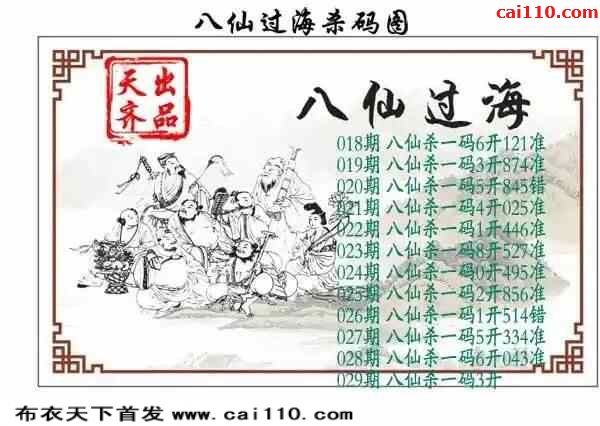 cai110.com
八仙过海杀码图
天齐
出品
八仙过海
018期 八仙杀一码6开121准
019期 八仙杀一码3开874准
020期 八仙杀一码5开845错
021期 八仙杀一码4开025准
022期 八仙杀一码1开446准
023期 八仙杀一码8开527准
024期 八仙杀一码0开495准
025期 八仙杀一码2开856准
026期 八仙杀一码1开514错
027期 八仙杀一码5开334准
028期 八仙杀一码6开043准
029期 八仙杀一码3开
布衣天下首发 www.cai110.com